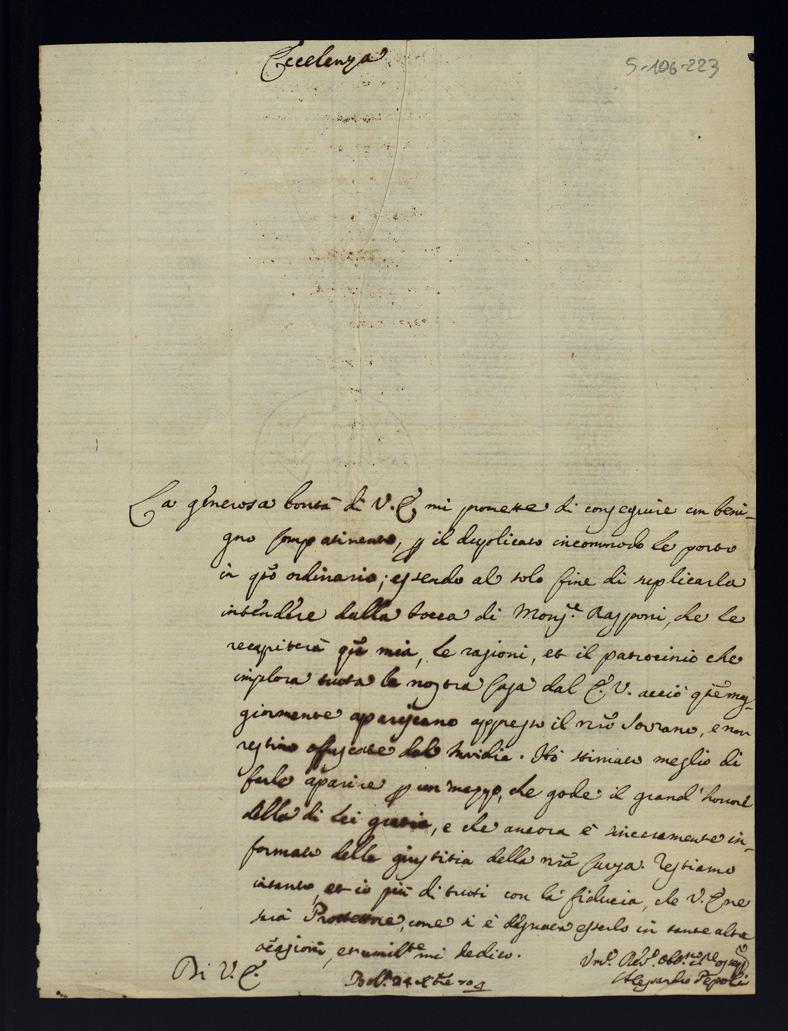 Eccelenza
S-106-223
La generosa bontà di V. E. mi promette di conseguire un beni-
gno compatimento, p il duplicato incommodo le porto
in qsto ordinario; essendo al solo fine di suplicarla
intendere dalla bocca di Monse. Rasponi, che le
recapiterà qta mia, le ragioni, et il patrocinio che
implora tutta la nostra Casa dal E. V. acciò qte mag-
giormente apariscano appresso il nro Sovrano, e non
restino offuscate dal Invidia. Hò stimato meglio di
farle aparire p un mezzo, che gode il grand' honore
della di Lei gratia, e che ancora è sinceramente in-
formato della giustitia della nra causa. Restiamo
intanto, et io più di tutti con la fiducia, che V. E. ne
sarà Protettore, come si è degnata esserlo in tante altre
ocasioni, et umilte mi dedico.
Di V. E.
Bola. 24
Alessandro Pepoli